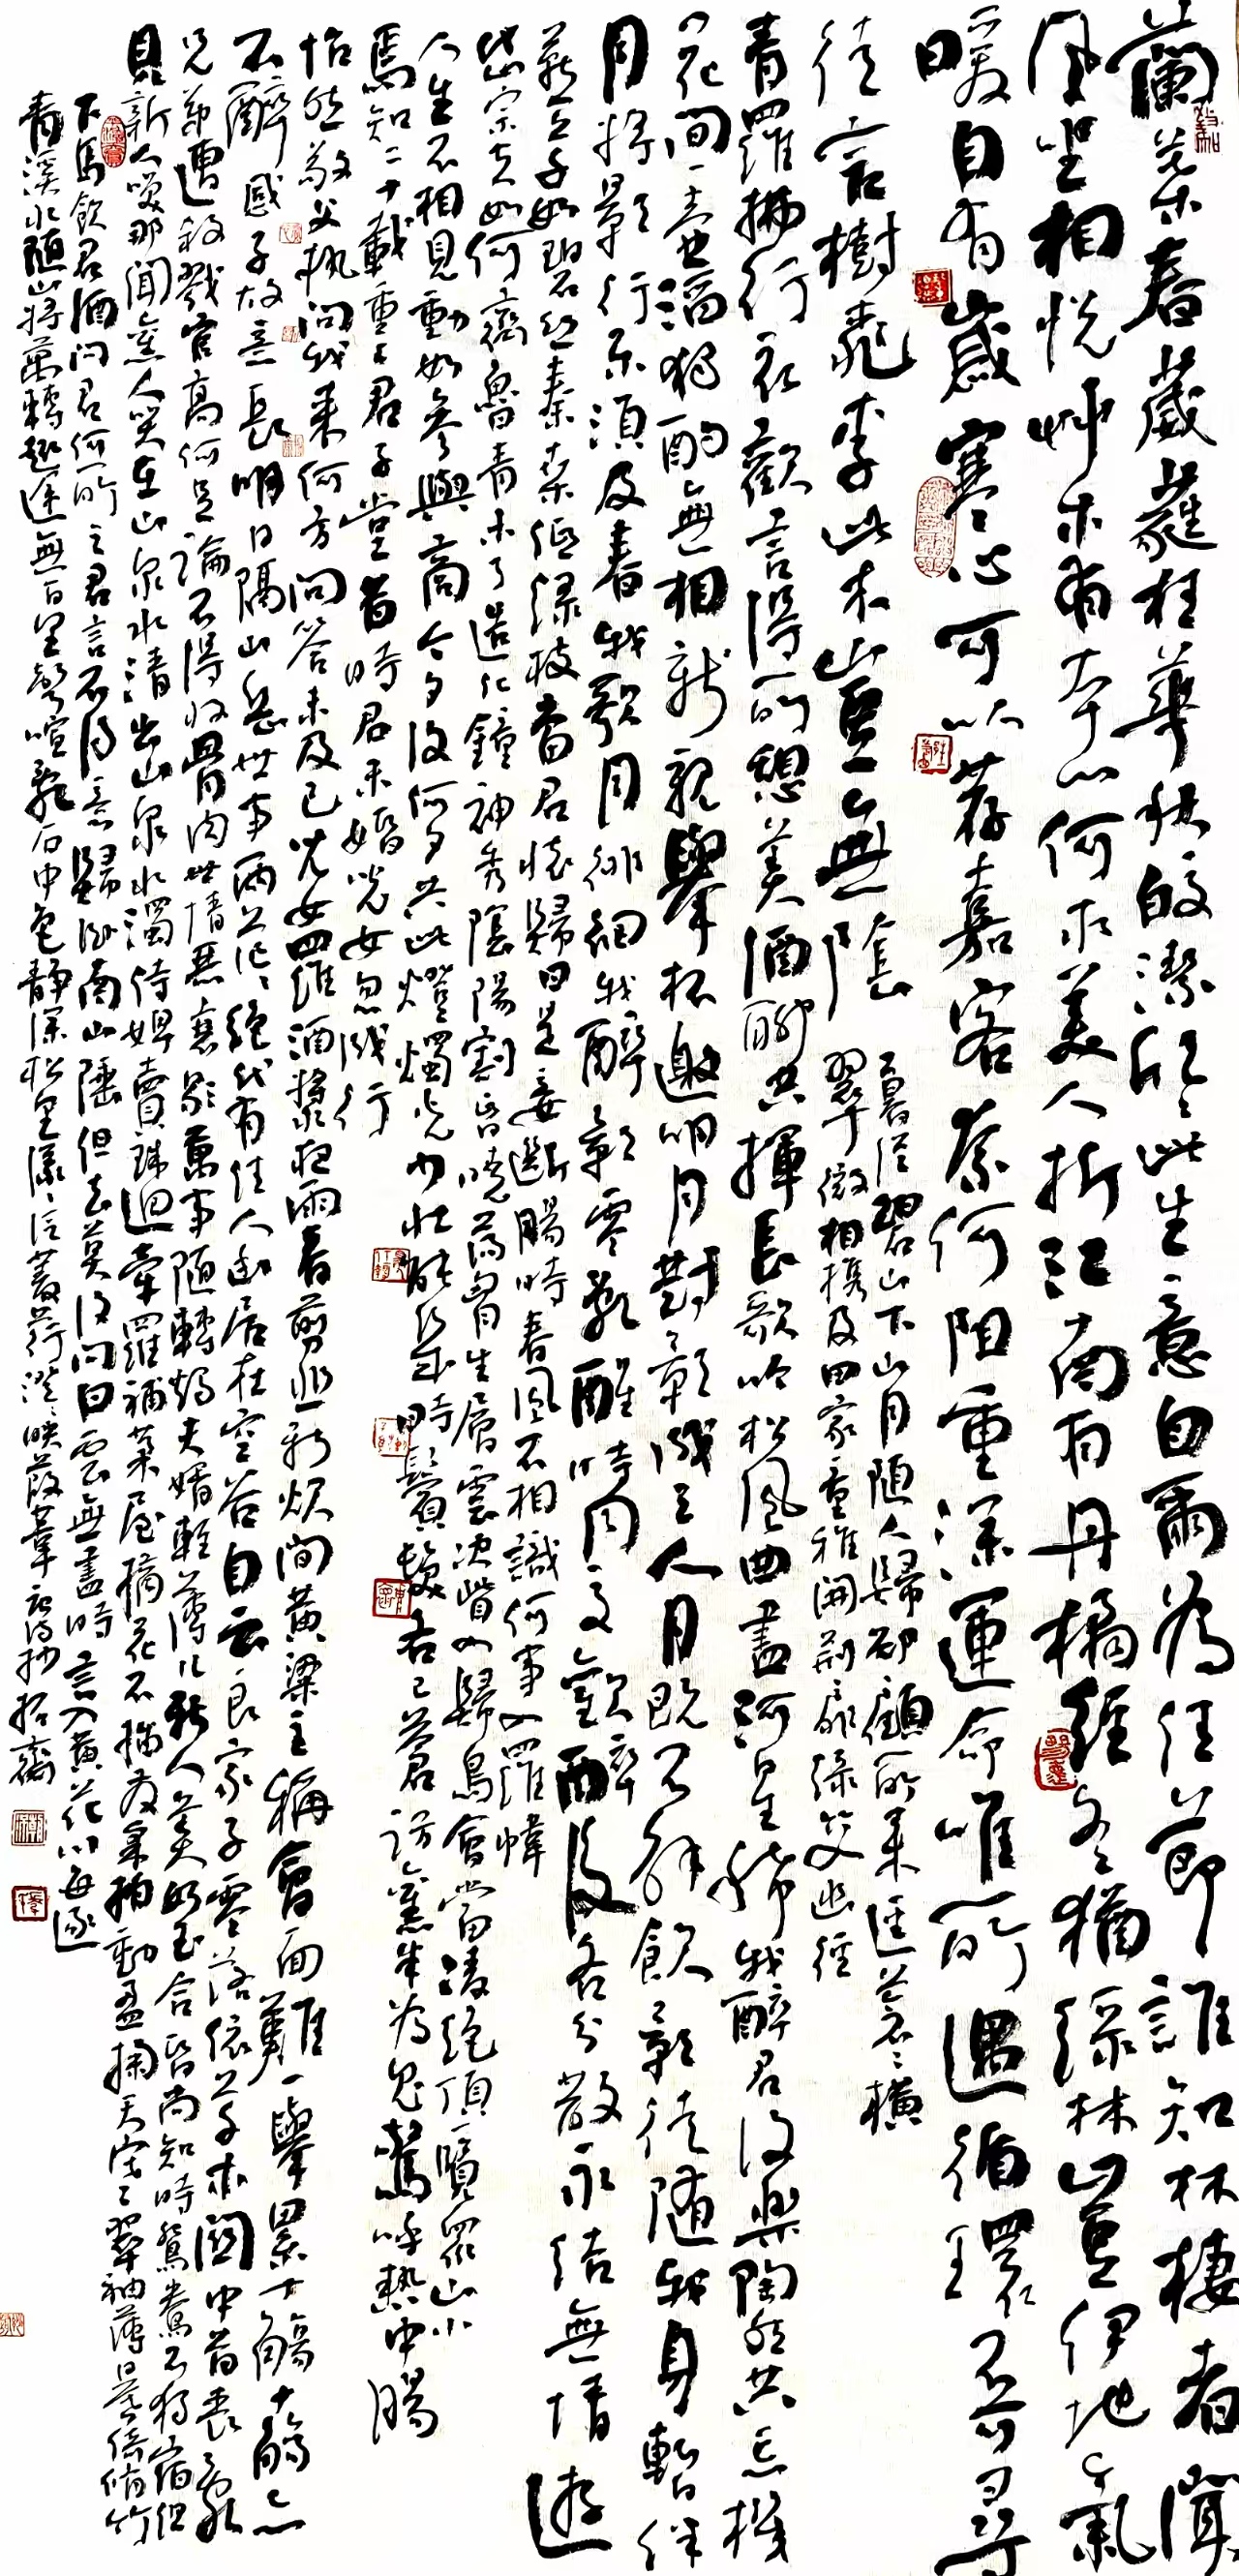 蘭葉春葳蕤桂華秋皎潔欣欣此生意自爾為佳節誰知林棲者聞
風坐相悅艸木有本心何求美人折江南有丹橘經冬猶綠林豈伊地氣
暖自有歲寒心可以荐嘉客奈何阻重深運命唯所遇循環不可尋
徒言樹桃李此木豈無陰
暮從碧山下山月隨人歸卻顧所來徑蒼蒼橫
翠微相攜及田家童稚開荊扉綠竹幽徑
青羅拂行衣歡言得所憩美酒聊共揮長歌吟松風曲盡河星稀我醉君復樂陶然共忘機
花間一壺酒獨酌無相親舉杯邀明月對影成三人月既不解飲影徒隨我身暫伴
月將影行樂須及春我歌月徘徊我醉影零亂醒時同交歡醉後各分散永結無情遊
燕草如碧丝秦桑低綠枝當君懷歸日是妾斷腸時春風不相識何事入羅幃
岱宗夫如何齊魯青未了造化鐘神秀陰陽割昏曉蕩胸生層雲決眥入歸鳥會當凌絕頂一覽眾山小
人生不相見動如參與商今夕復何夕共此燈燭光少壯能幾時鬢髮各已蒼訪舊半為鬼驚呼熱中腸
焉知二十載重上君子堂昔時君未婚兒女忽成行
怡然敬父執問我來何方問答未及已兒女羅酒漿夜雨春剪韭新炊間黃粱主稱會面難一舉累十觴十觴亦
不醉感子故意長明日隔山岳世事兩茫茫絕代有佳人幽居在空谷自云良家子零落依草木關中昔喪亂
兄弟遭殺戮官高何足論不得收骨肉世情惡衰歇萬事隨轉燭夫婿輕薄兒新人美如玉合昏尚知時鴛鴦不獨宿但
見新人笑那聞舊人哭在山泉水清出山泉水濁侍婢賣珠迴牽羅補茅屋摘花不插髮采柏動盈掬天寒翠袖薄日暮倚修竹
下馬飲君酒問君何所之君言不得意歸臥南山陲但去莫復問白雲無盡時言入黃花川每逐
青溪水隨山將萬轉趣途無百里聲喧亂石中色靜深松里漾漾泛菱荇澄澄映葭葦